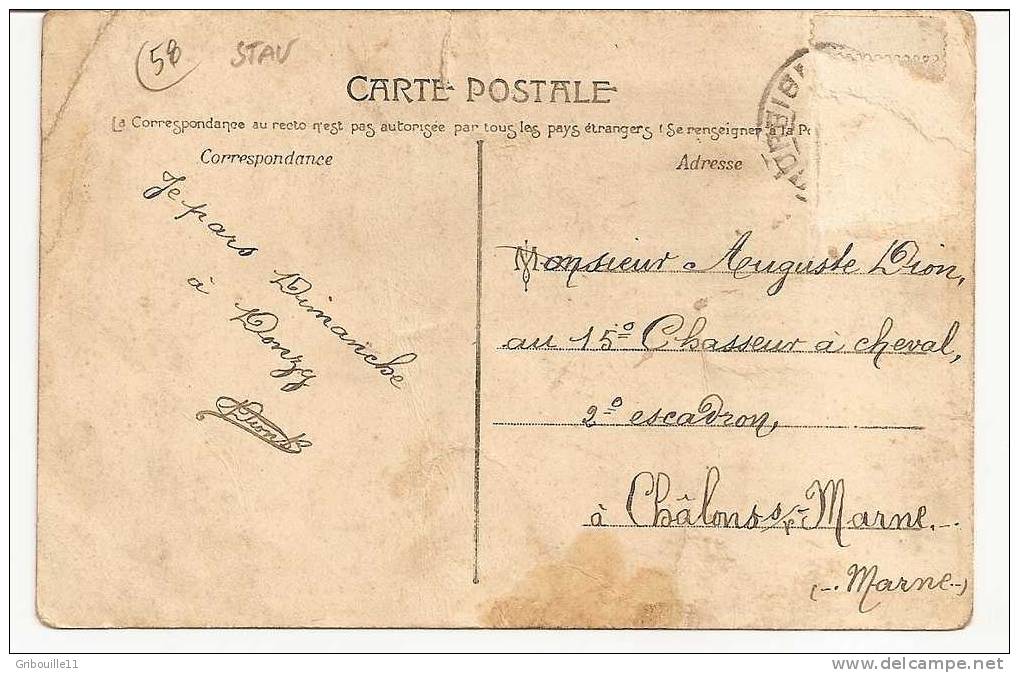 58
STAV
CARTE POSTALE
La Correspondance au recto n'est pas autorisée par tous les pays étrangers (Se renseigner à la Po
Correspondance
Adresse
Je pars Dimanche
à Donzy
Dion
Monsieur Auguste Dion,
au 15º Chasseur à cheval,
2º escadron,
à Châlons s/- Marne.
(-. Marne -)
Gribouille11
www.delcampe.net